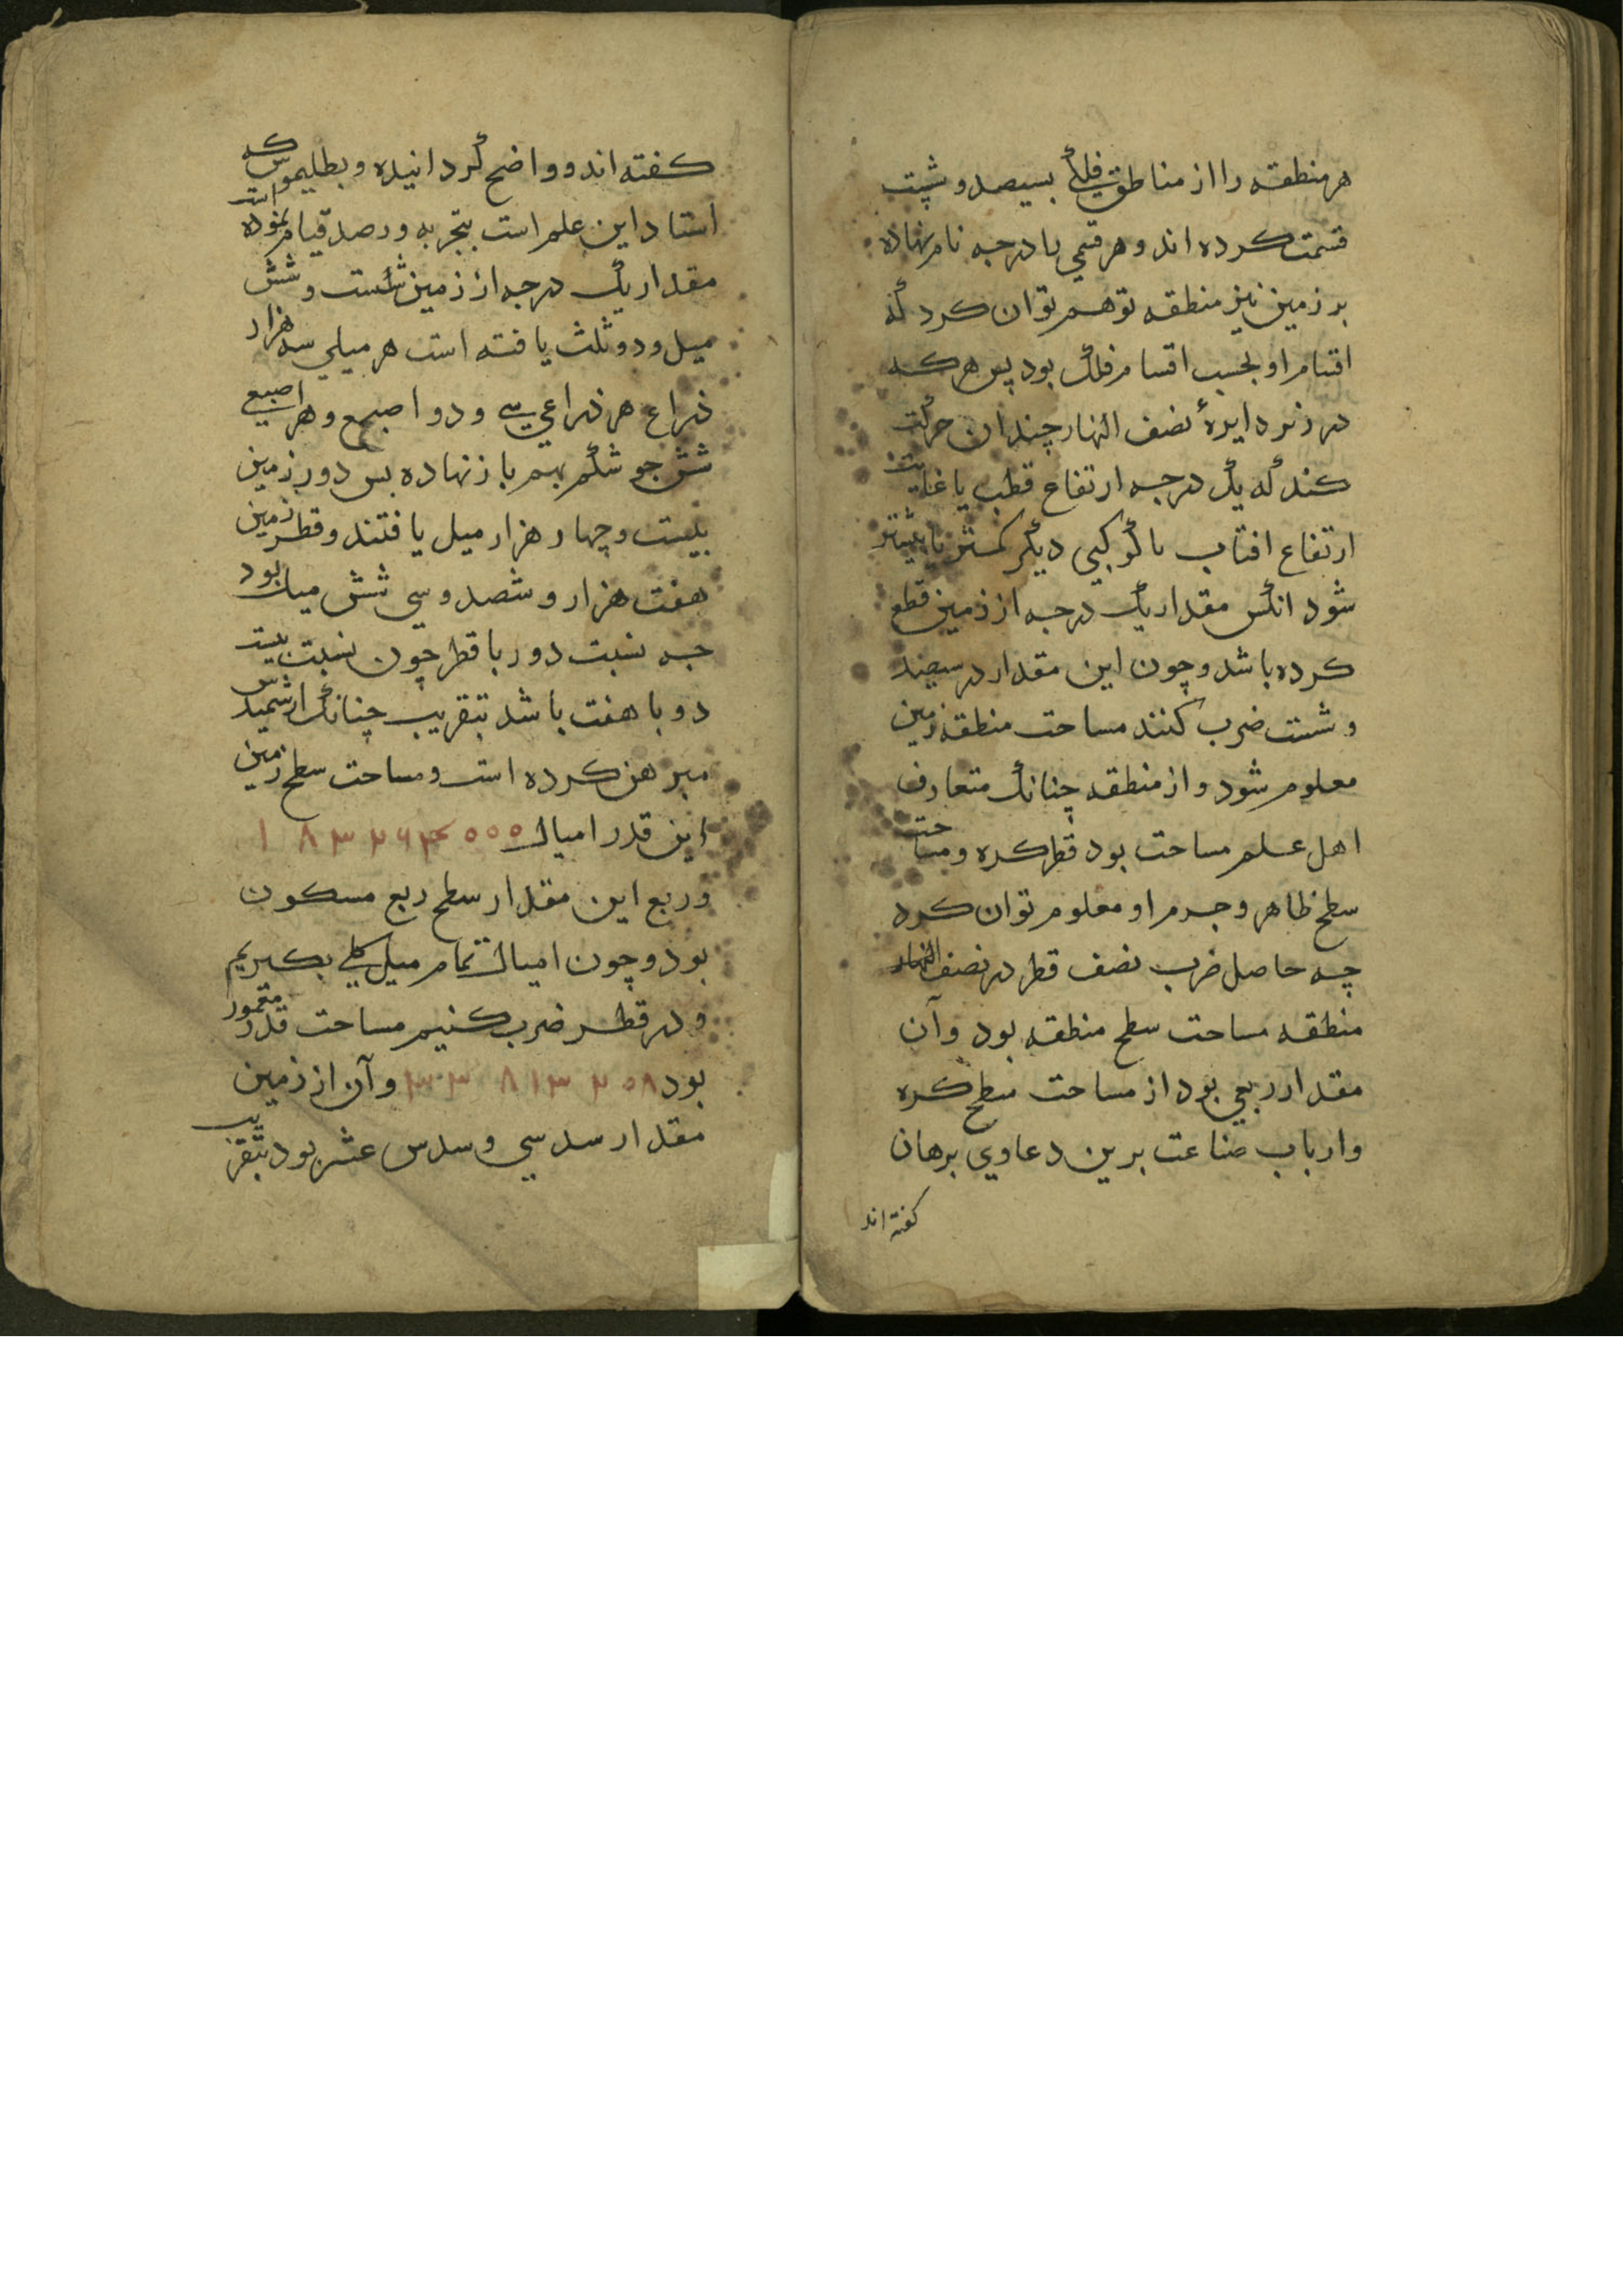 هر منطقه را از مناطق فلکی بسیصد و شست
قسمت کرده اند و هر قسمی را درجه نام نهاده
بر زمین نیز منطقه توهم توان کرد که
اقسام او بحسب اقسام فلک بود پس هر که
در زیر دایرهٔ نصف النهار چندان حرکت
کند که یک درجه ارتفاع قطب یا غایت
ارتفاع افتاب یا کوکبی دیگر کمتر یا بیشتر
شود انکس مقدار یک درجه از زمین قطع
کرده باشد و چون این مقدار در سیصد
و شست ضرب کنند مساحت منطقه زمین
معلوم شود و از منطقه چنانک متعارف
اهل علم مساحت بود قطر کره و مساحت
سطح ظاهر و جرم او معلوم توان کرد
چه حاصل ضرب نصف قطر در نصف النهار
منطقه مساحت سطح منطقه بود و آن
مقدار ربعی بود از مساحت سطح کره
و ارباب صناعت برین دعاوی برهان
کفته اند
کفته اند و واضح گردانیده و بطلیموس که
استاد این علم است بتجربه و رصد قیام نموده است
مقدار یک درجه از زمین شست و شش
میل و دو ثلث یافته است هر میلی سه هزار
ذراع هر ذراعی سی و دو اصبع و هر اصبعی
شش جو شکم بهم باز نهاده بس دور زمین
بیست و چهار هزار میل یافتند و قطر زمین
هفت هزار و ششصد و سی شش میل بود
جه نسبت دور با قطر چون نسبت بیست
دو با هفت باشد بتقریب چنانک ارشمیدس
مبرهن کرده است و مساحت سطح زمین
این قدر امیال ۱۸۳۲۶۴۰۰۰
و ربع این مقدار سطح ربع مسکون
بود و چون امیال تمام میل کلی بکیریم
و در قطر ضرب کنیم مساحت قدر معمور
بود ۳۳۸۱۳۲۰۸ و آن از زمین
مقدار سدسی و سدس عشر بود بتقریب